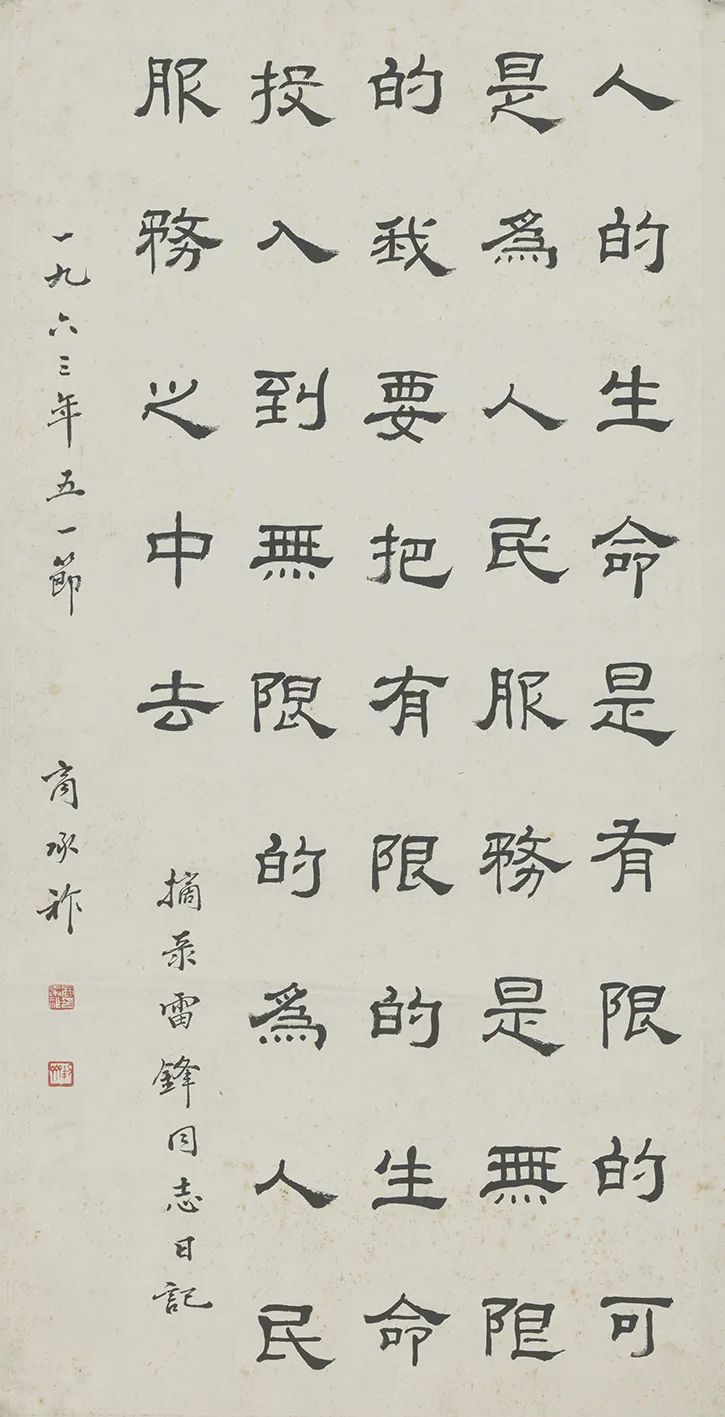 人的生命是有限的可
是為人民服務是無限
的我要把有限的生命
投入到無限的為人民
服務之中去
摘录雷鋒同志日記
一九六三年五一節
商承祚